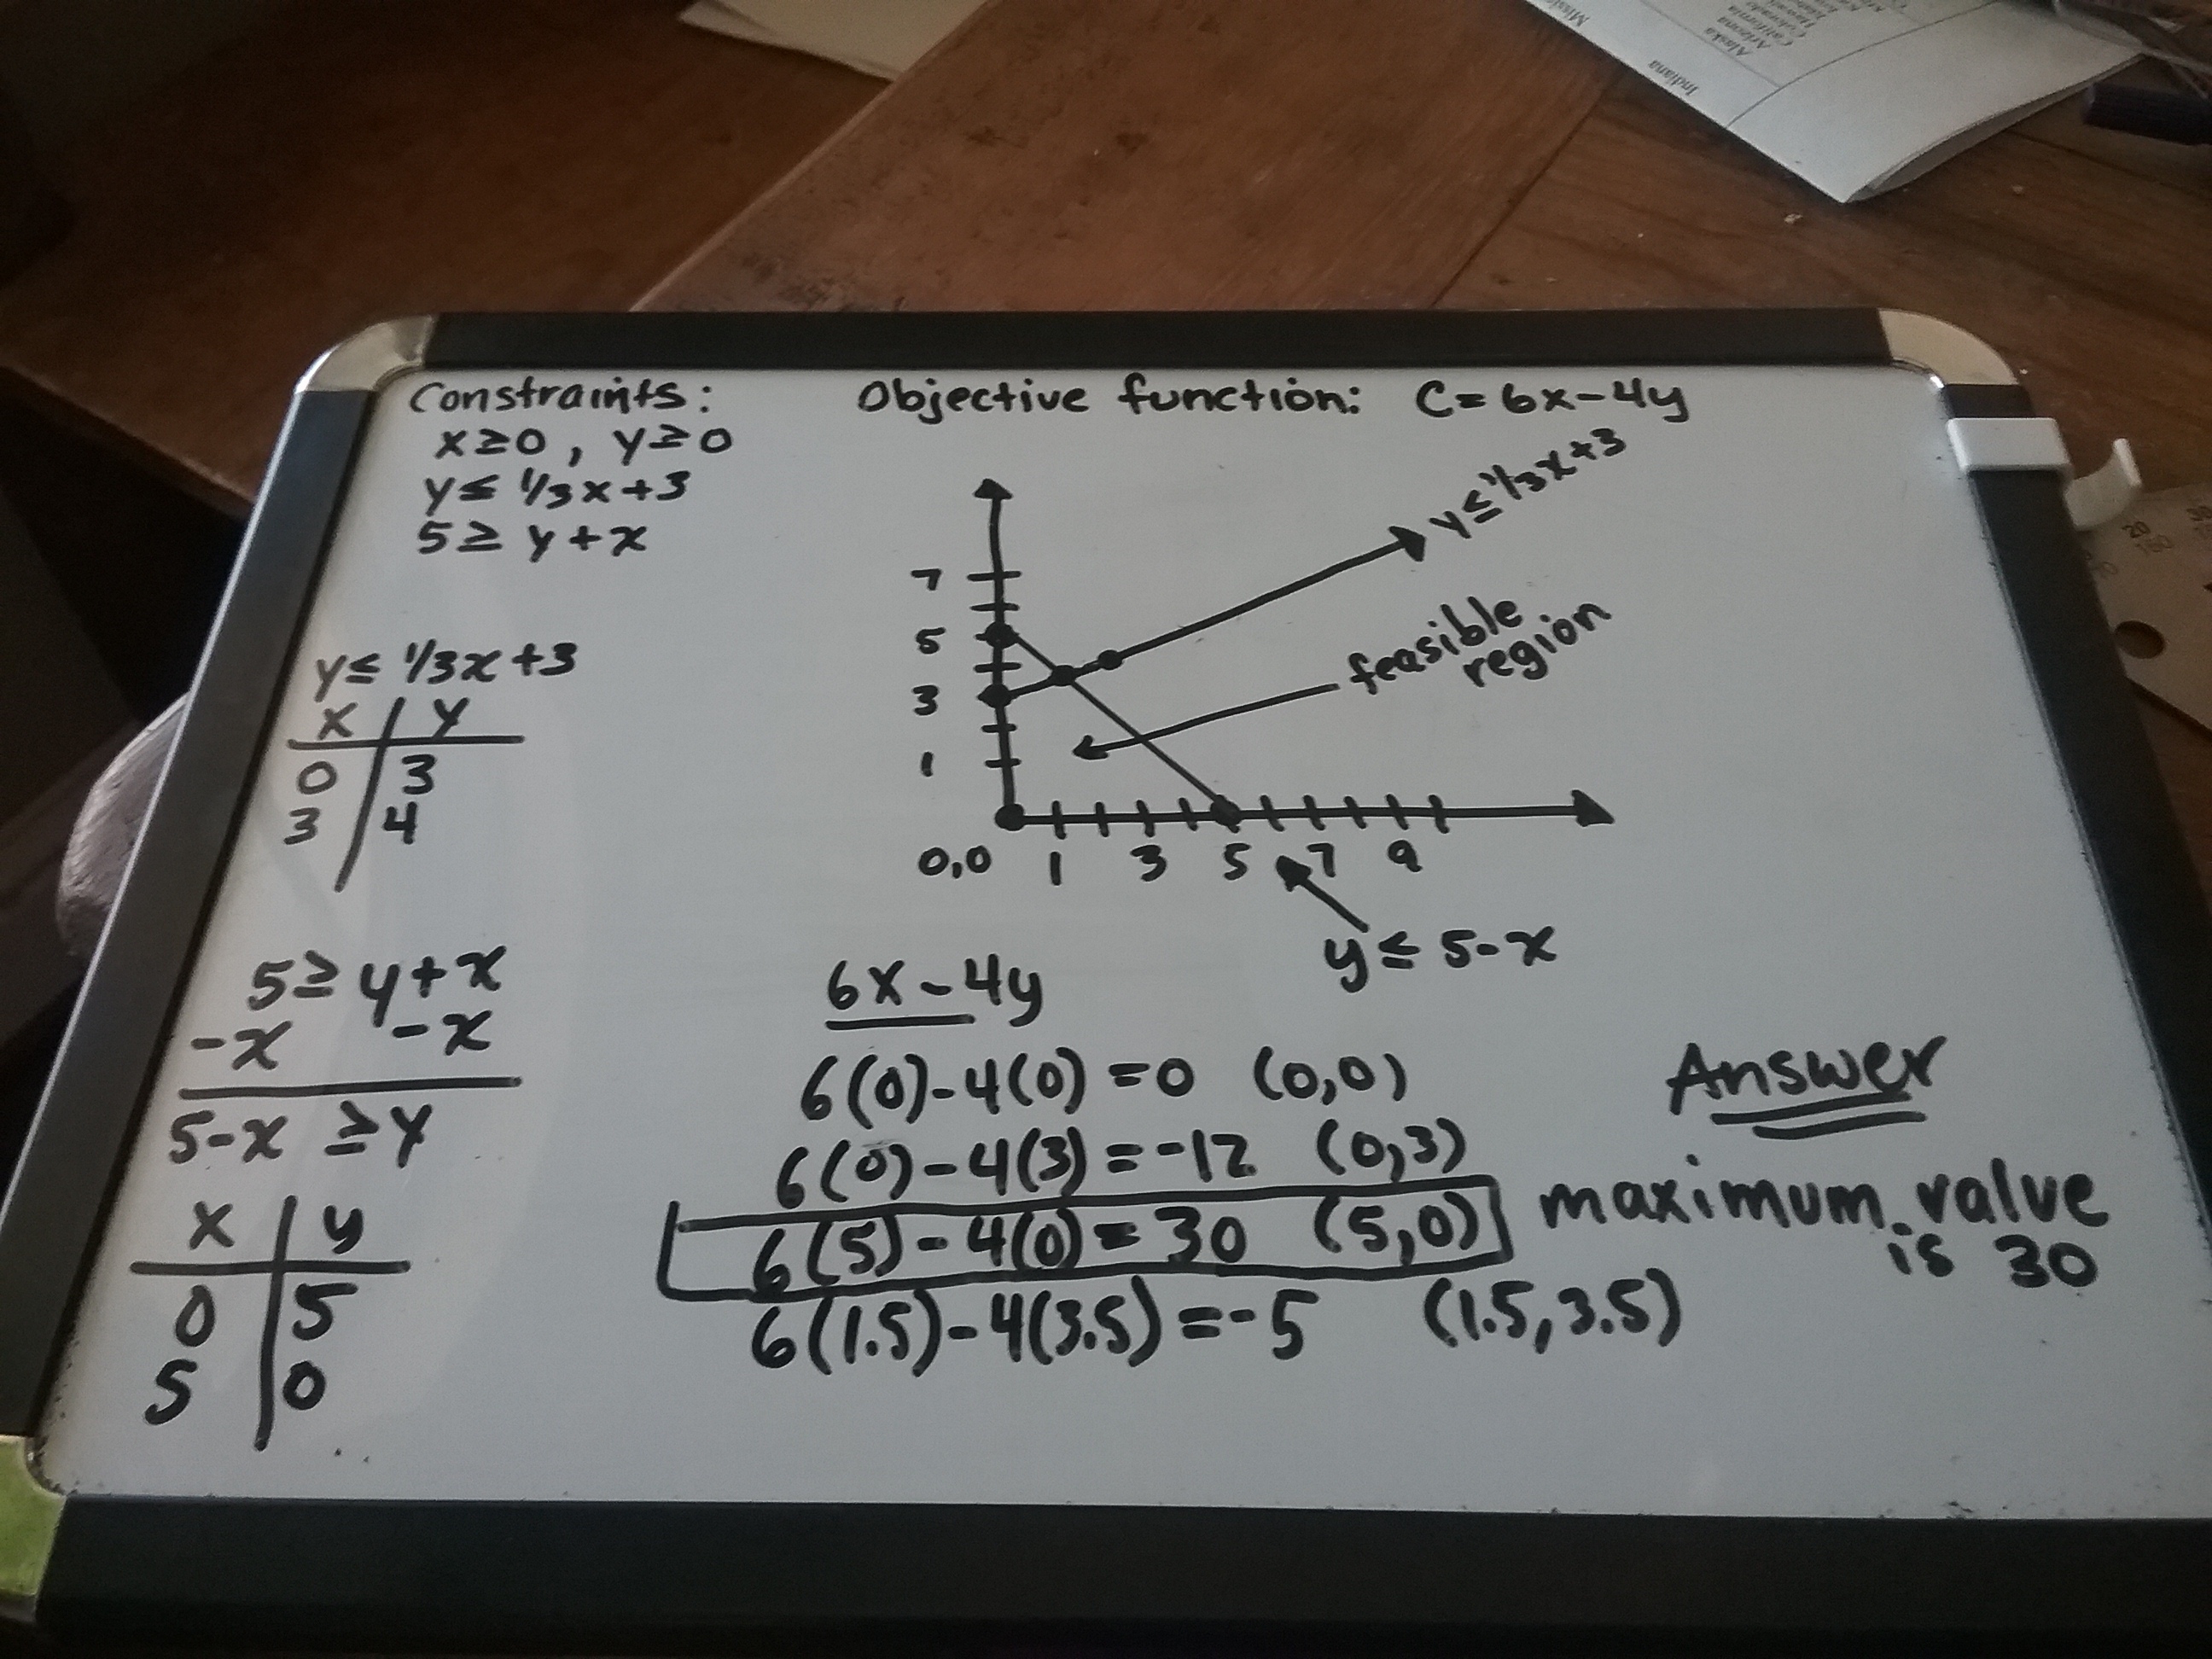 Constraints:
x≥0, y≥0
y≤ 1/3x+3
5≥ y+x
Objective function: C=6x-4y
y≤1/3x+3
feasible
region
7
5
3
1
0,0 1 3 5 7 9
y≤ 5-x
y≤ 1/3x+3
x y
0 3
3 4
5≥ y+x
-x -x
5-x ≥y
x y
0 5
5 0
6x-4y
6(0)-4(0)=0 (0,0)
6(0)-4(3)=-12 (0,3)
6(5)-4(0)=30 (5,0)
6(1.5)-4(3.5)=-5 (1.5,3.5)
Answer
maximum value
is 30
Indiana
Alaska
Arizona
California
20
160
30